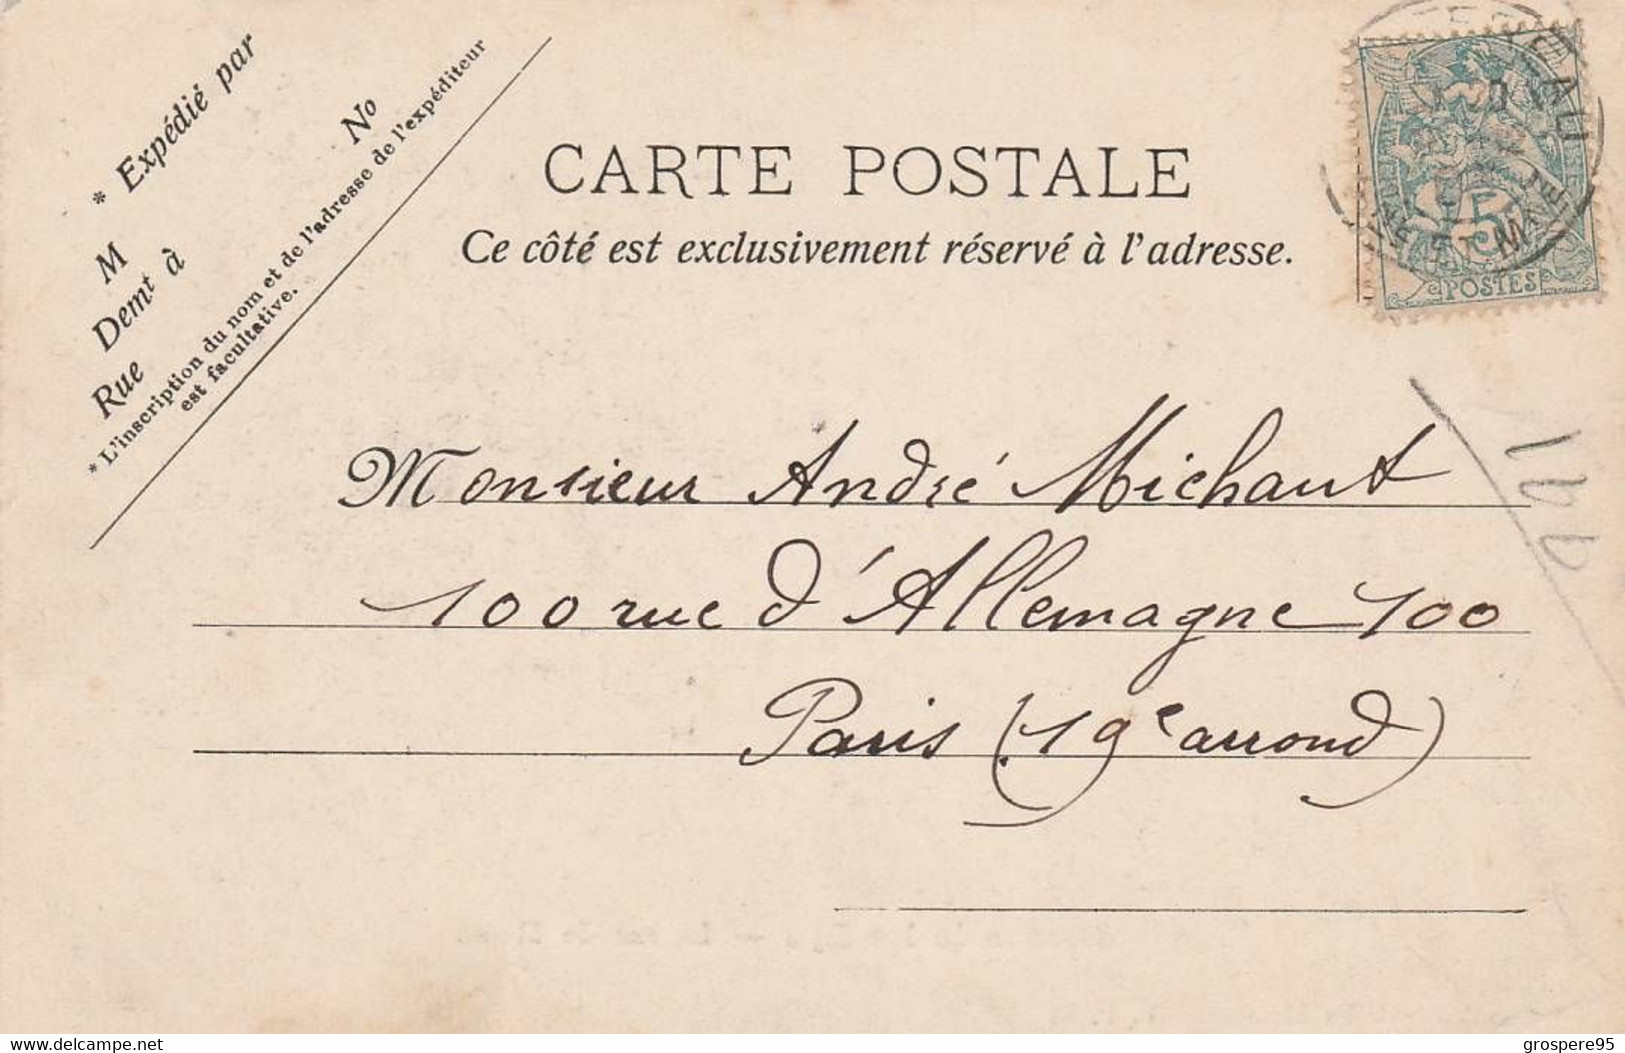 * Expédié par
M No
Demt à
Rue
* L'inscription du nom et de l'adresse de l'expéditeur
est facultative.
CARTE POSTALE
Ce côté est exclusivement réservé à l'adresse.
5
POSTES
ET MARNE
Monsieur André Michaut
100 rue d'Allemagne 100
Paris (19e arrond)
http://www.delcampe.net
grospere95